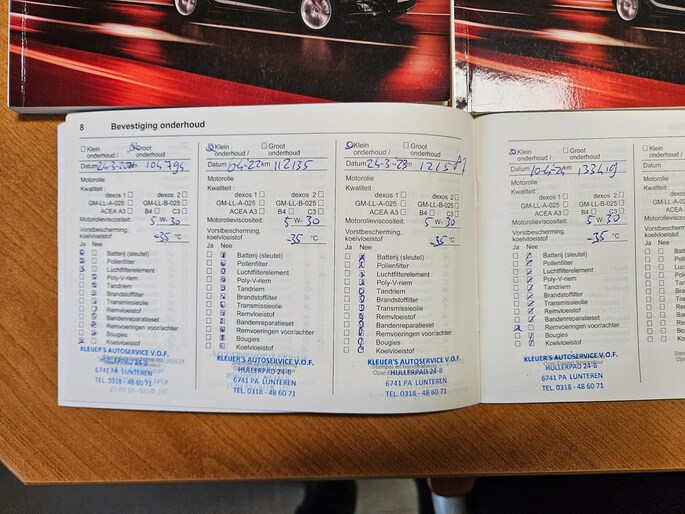 8 Bevestiging onderhoud
Klein onderhoud / Groot onderhoud
Datum km 104794
Motorolie
Kwaliteit :
dexos 1 dexos 2
GM-LL-A-025 GM-LL-B-025
ACEA A3 B4 C3
Motorolieviscositeit: 5 W- 30
Vorstbescherming,
koelvloeistof -35 °C
Ja Nee
Batterij (sleutel)
Pollenfilter
Luchtfilterelement
Poly-V-riem
Tandriem
Brandstoffilter
Transmissieolie
Remvloeistof
Bandenreparatieset
Remvoeringen voor/achter
Bougies
Koelvloeistof
KLEUER'S AUTOSERVICE V.O.F.
HULLERPAD 24-B
6741 PA LUNTEREN
TEL. 0318 - 48 60 71
Klein onderhoud / Groot onderhoud
Datum 04-22 km 112135
Motorolie
Kwaliteit :
dexos 1 dexos 2
GM-LL-A-025 GM-LL-B-025
ACEA A3 B4 C3
Motorolieviscositeit: 5 W- 30
Vorstbescherming,
koelvloeistof -35 °C
Ja Nee
Batterij (sleutel)
Pollenfilter
Luchtfilterelement
Poly-V-riem
Tandriem
Brandstoffilter
Transmissieolie
Remvloeistof
Bandenreparatieset
Remvoeringen voor/achter
Bougies
Koelvloeistof
KLEUER'S AUTOSERVICE V.O.F.
HULLERPAD 24-B
6741 PA LUNTEREN
TEL. 0318 - 48 60 71
Klein onderhoud / Groot onderhoud
Datum 24-3-23 km
Motorolie
Kwaliteit :
dexos 1 dexos 2
GM-LL-A-025 GM-LL-B-025
ACEA A3 B4 C3
Motorolieviscositeit: 5 W- 30
Vorstbescherming,
koelvloeistof -35 °C
Ja Nee
Batterij (sleutel)
Pollenfilter
Luchtfilterelement
Poly-V-riem
Tandriem
Brandstoffilter
Transmissieolie
Remvloeistof
Bandenreparatieset
Remvoeringen voor/achter
Bougies
Koelvloeistof
KLEUER'S AUTOSERVICE V.O.F.
HULLERPAD 24-B
6741 PA LUNTEREN
TEL. 0318 - 48 60 71
Klein onderhoud / Groot onderhoud
Datum 10-4-24 km
Motorolie
Kwaliteit :
dexos 1 dexos 2
GM-LL-A-025 GM-LL-B-025
ACEA A3 B4 C3
Motorolieviscositeit: 5 W- 30
Vorstbescherming,
koelvloeistof -35 °C
Ja Nee
Batterij (sleutel)
Pollenfilter
Luchtfilterelement
Poly-V-riem
Tandriem
Brandstoffilter
Transmissieolie
Remvloeistof
Bandenreparatieset
Remvoeringen voor/achter
Bougies
Koelvloeistof
KLEUER'S AUTOSERVICE V.O.F.
HULLERPAD 24-B
6741 PA LUNTEREN
TEL. 0318 - 48 60 71
Ja Nee